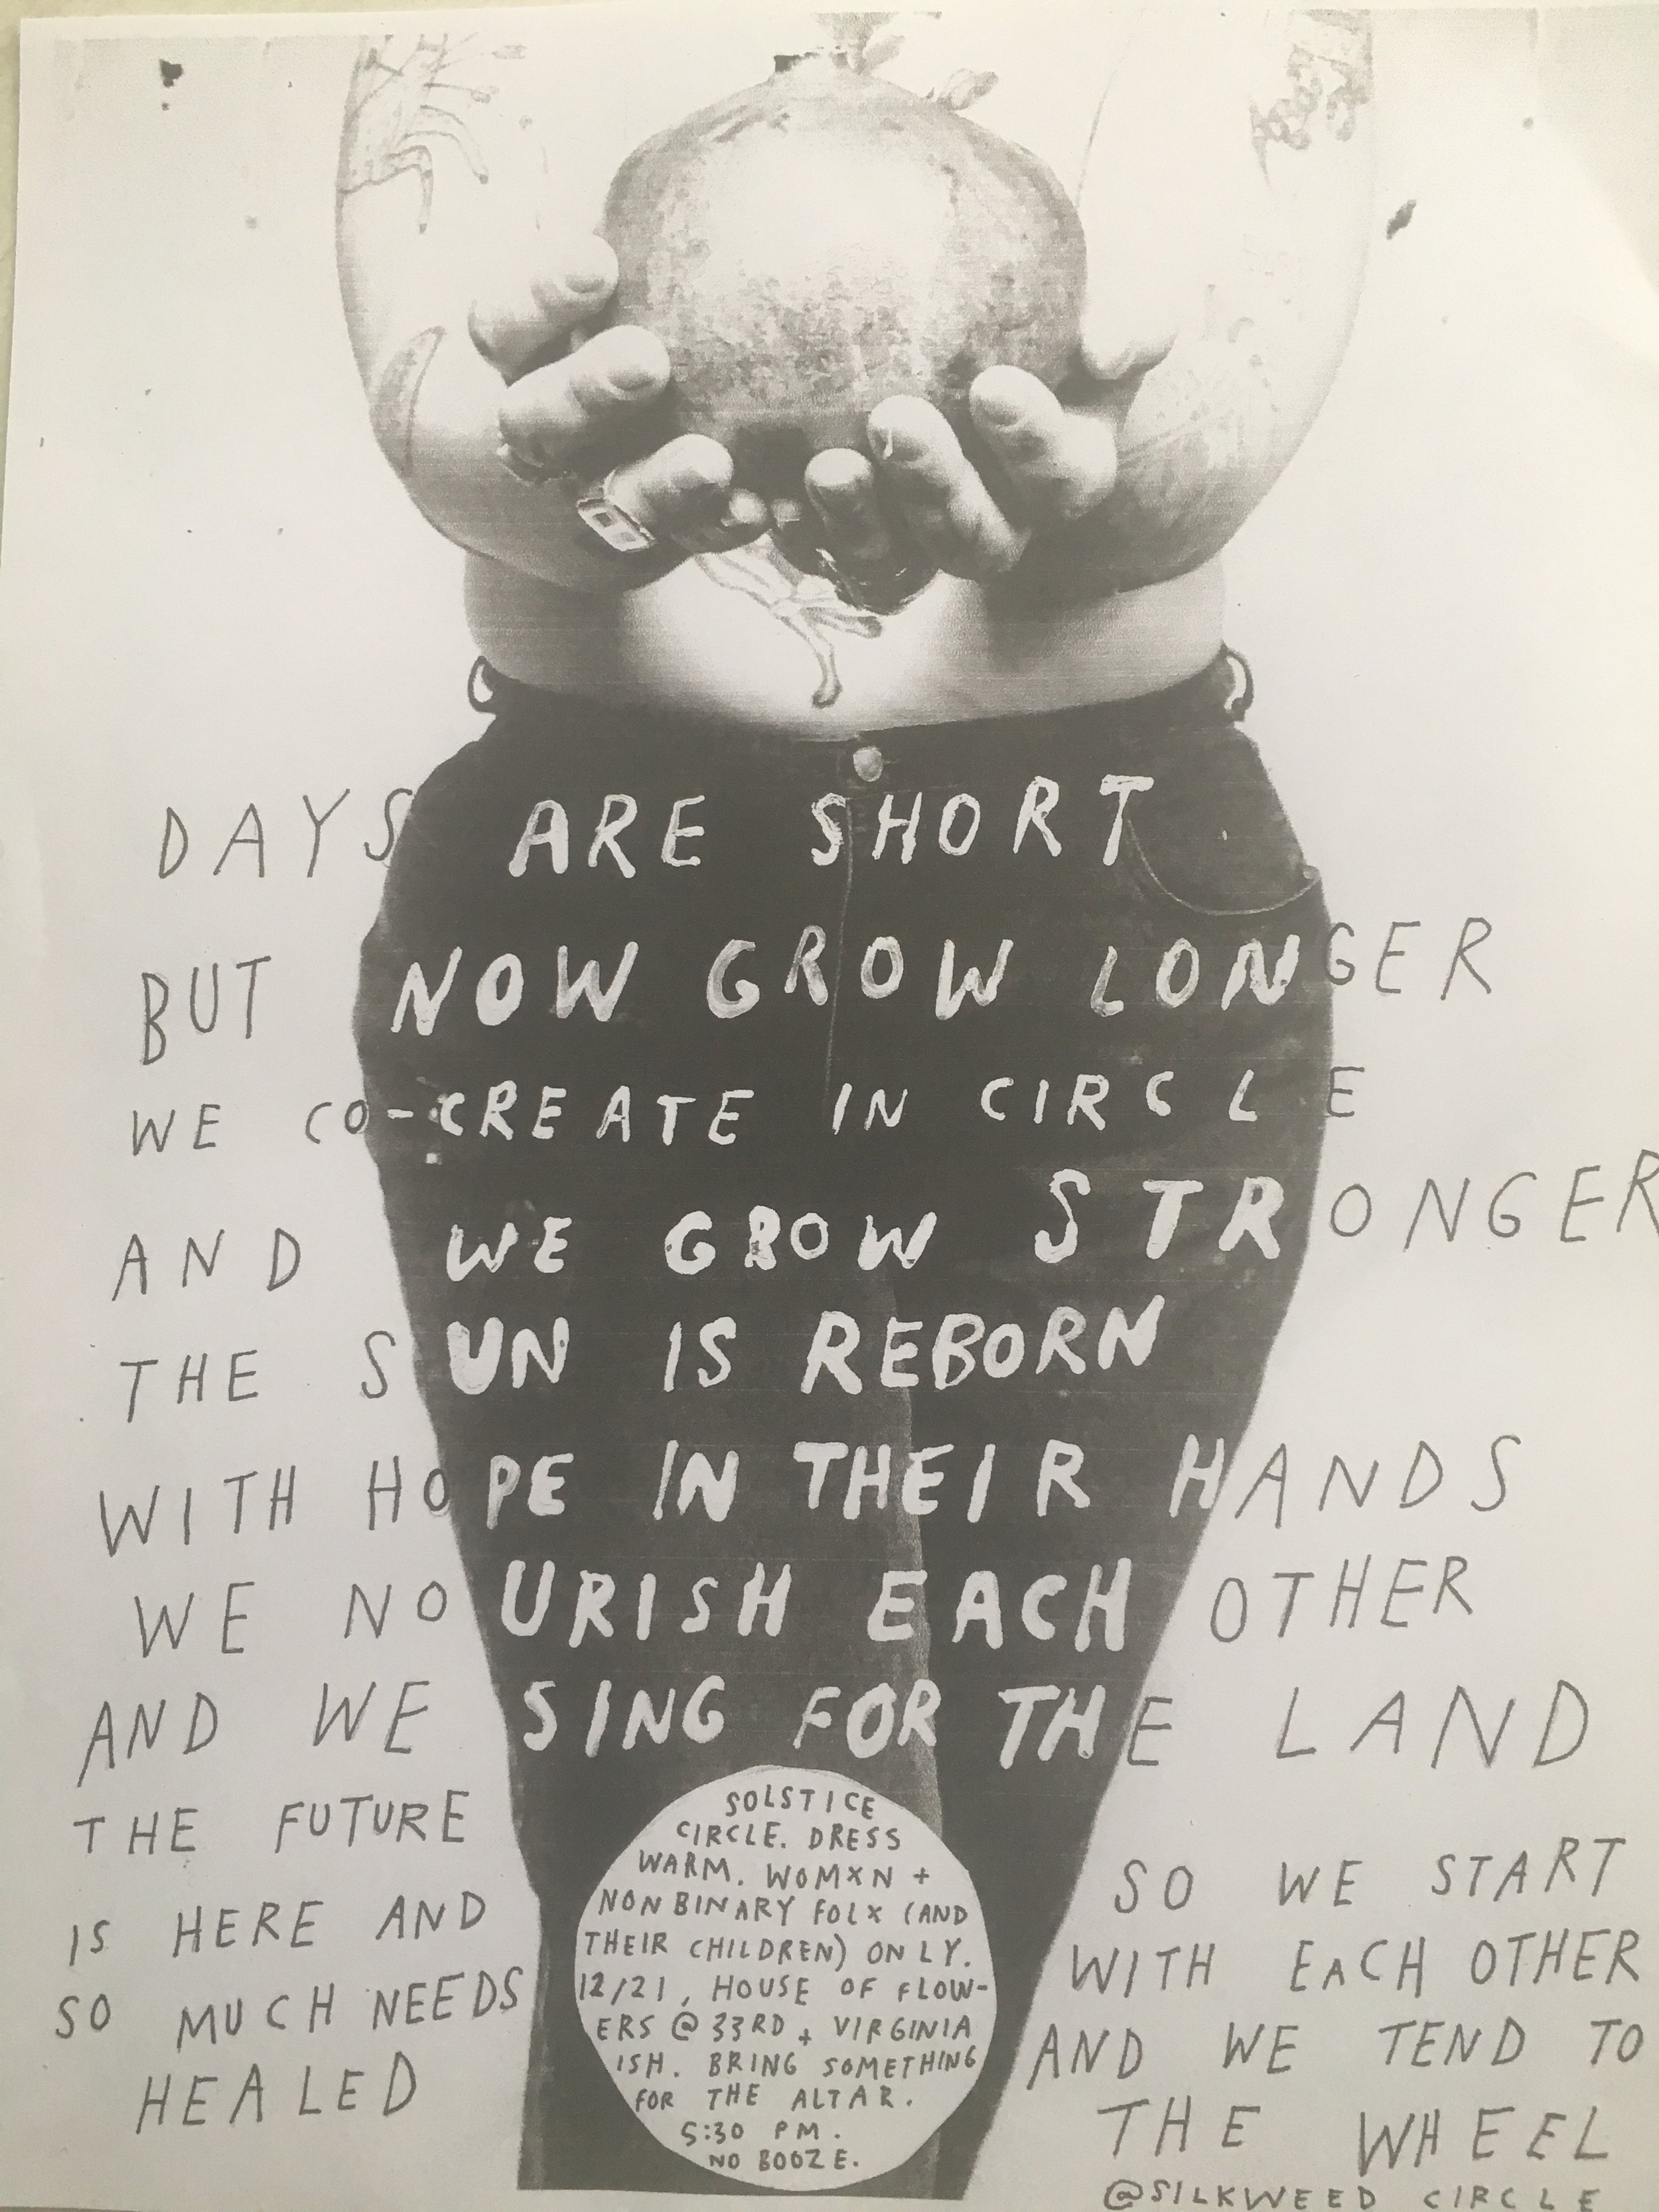 DAYS ARE SHORT
BUT NOW GROW LONGER
WE CO-CREATE IN CIRCLE
AND WE GROW STRONGER
THE SUN IS REBORN
WITH HOPE IN THEIR HANDS
WE NOURISH EACH OTHER
AND WE SING FOR THE LAND
THE FUTURE
IS HERE AND
SO MUCH NEEDS
HEALED
SO WE START
WITH EACH OTHER
AND WE TEND TO
THE WHEEL
SOLSTICE
CIRCLE. DRESS
WARM. WOMXN +
NONBINARY FOLX (AND
THEIR CHILDREN) ONLY.
12/21, HOUSE OF FLOW-
ERS @ 33RD + VIRGINIA
ISH. BRING SOMETHING
FOR THE ALTAR.
5:30 PM.
NO BOOZE.
@SILKWEED CIRCLE